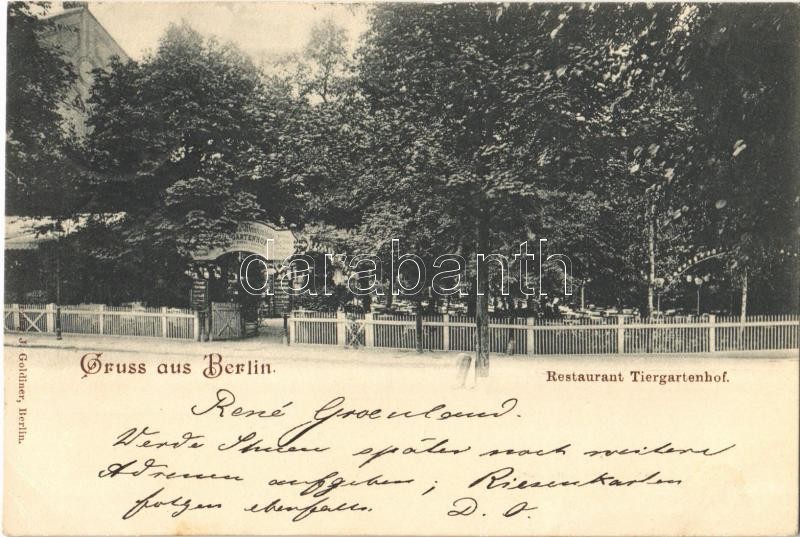 ARTENHOF
darabanth
Gruss aus Berlin.
Restaurant Tiergartenhof.
J. Goldiner, Berlin.
René Groenland.
Werde Ihnen später noch weitere
Adressen aufgeben; Riesenkarten
folgen ebenfalls. D. O.